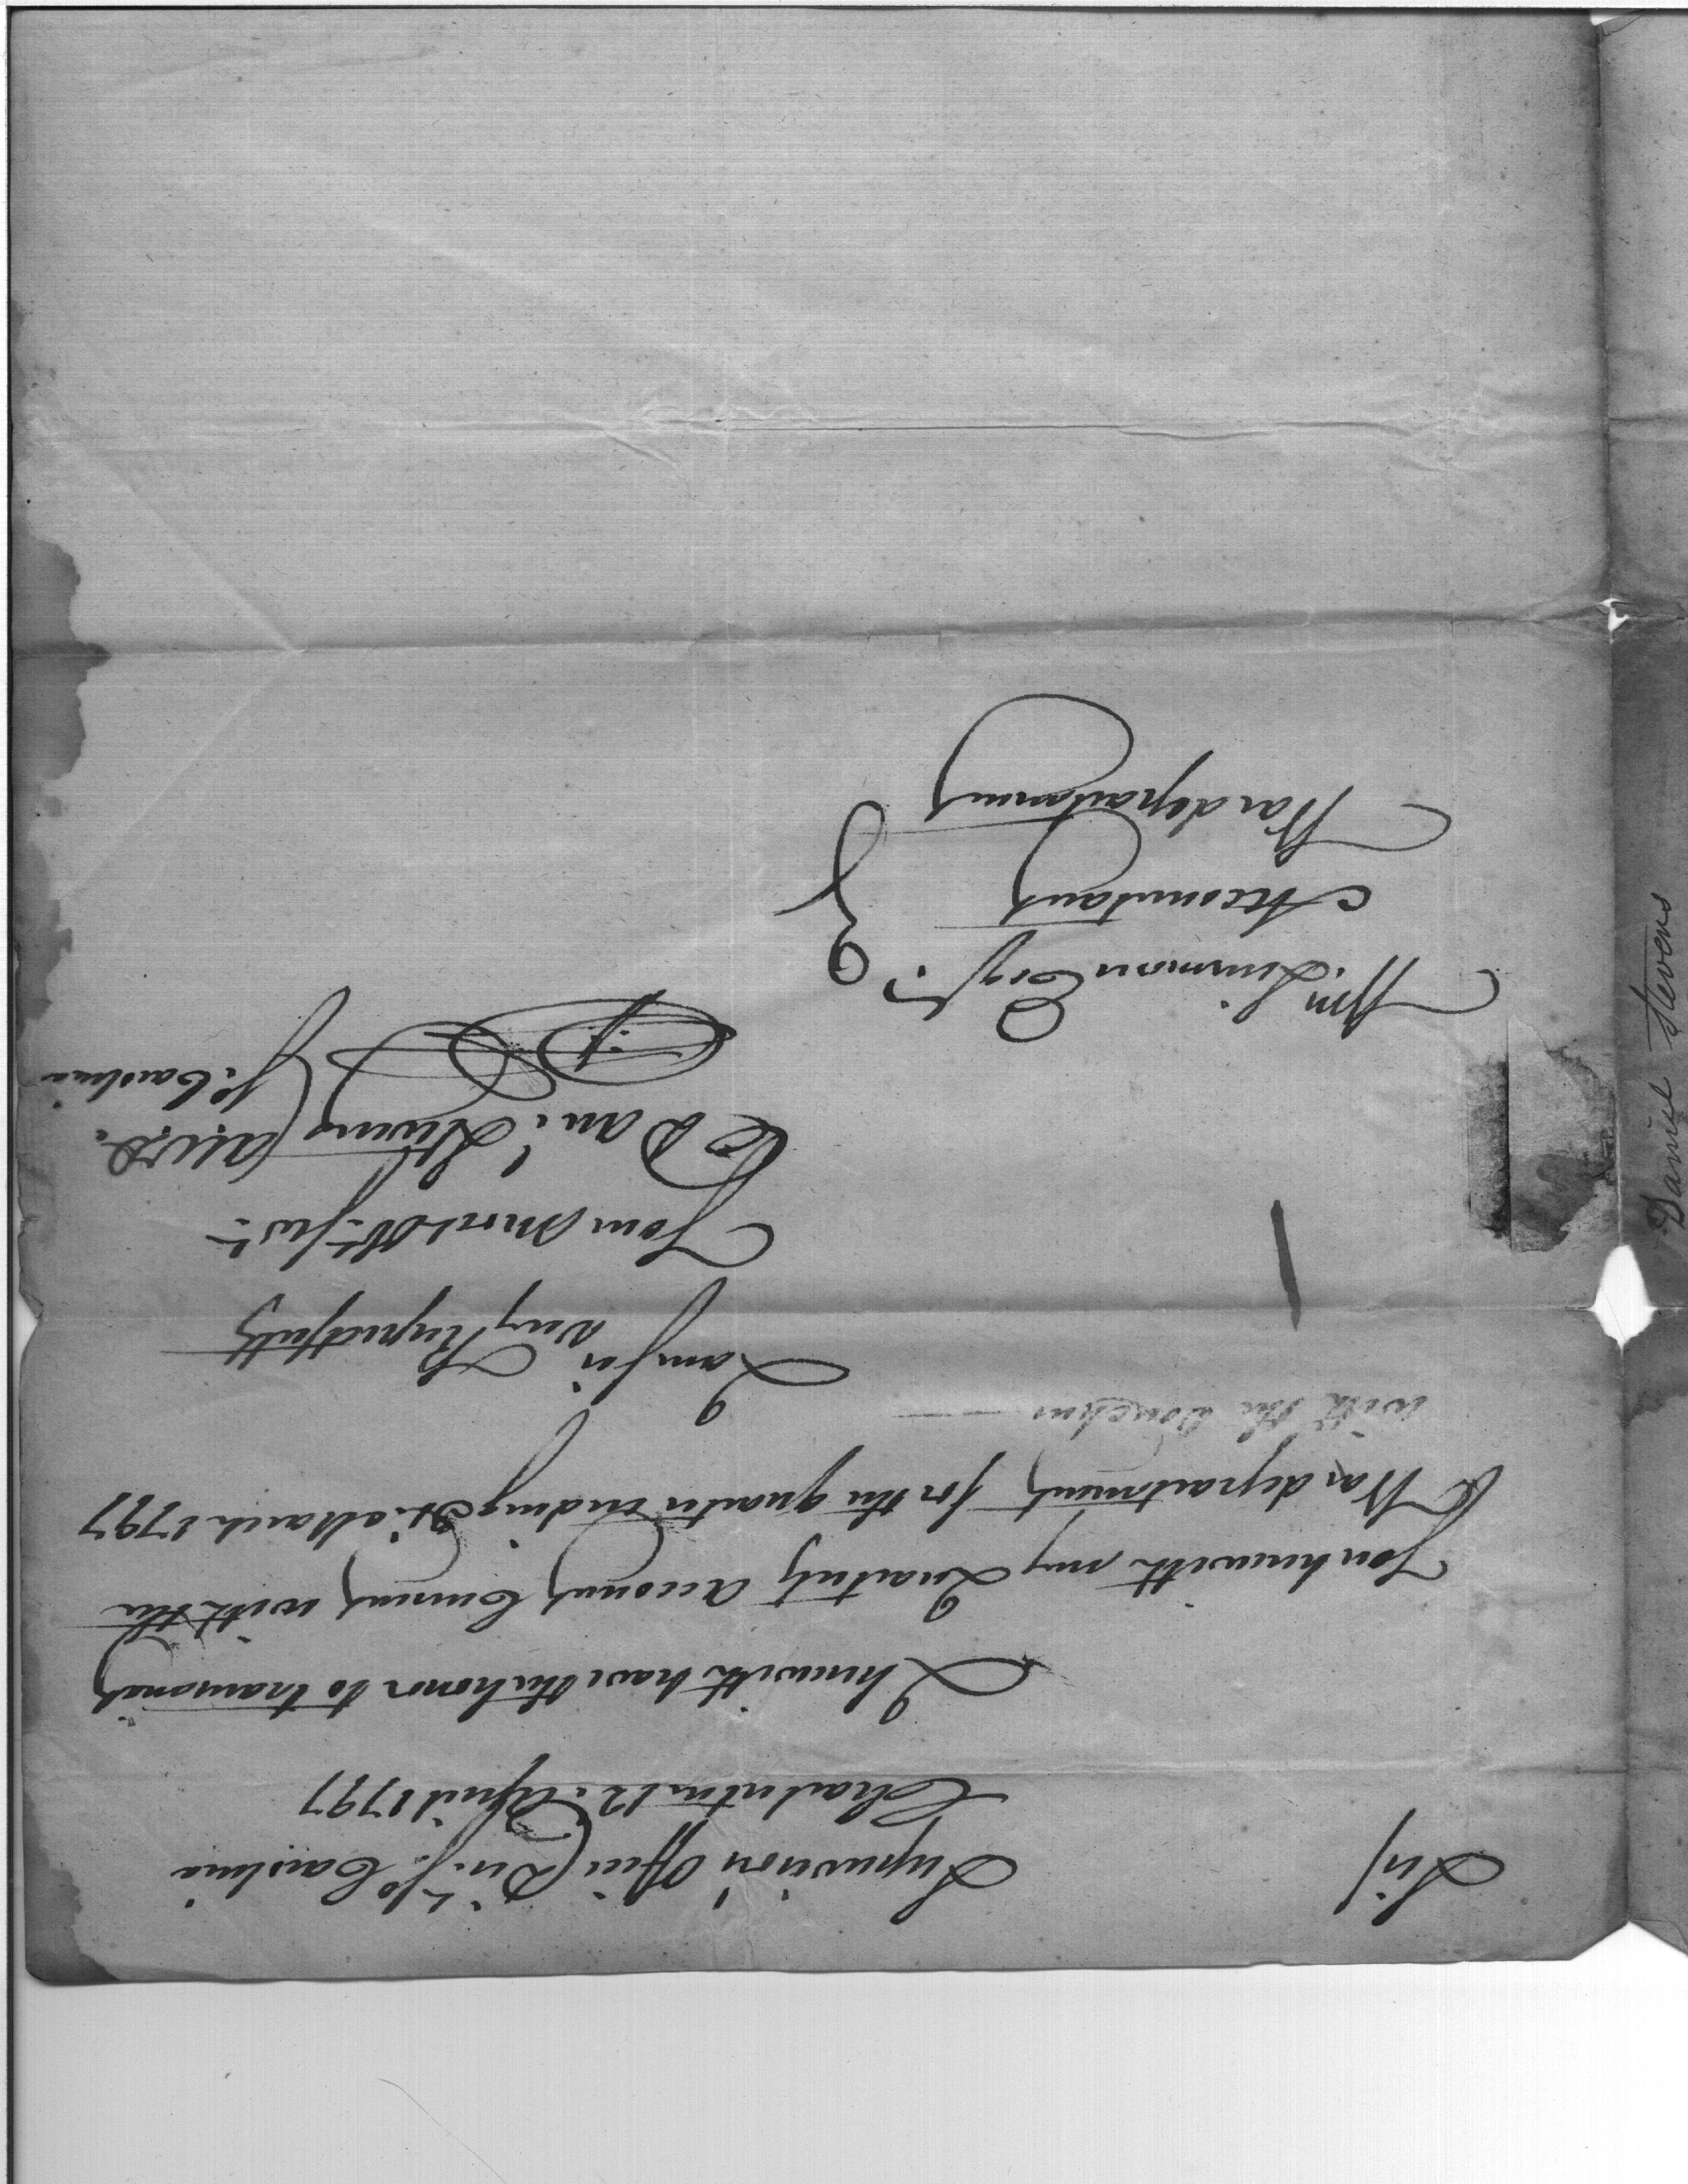 Sir/
Supervisors Office Dis.t So Carolina
Charleston 12. April 1797
I herewith have the honor to transmit
You herewith my Quarterly Account Current with the
War department for the quarter Ending 31. March 1797
with the Vouchers
I am Sir
Very Respectfully
Your Most Obt. Servt.
Danl. Stevens
So. Carolina
Wm Simmons Esqr.
Accountant
War department
Daniel Stevens